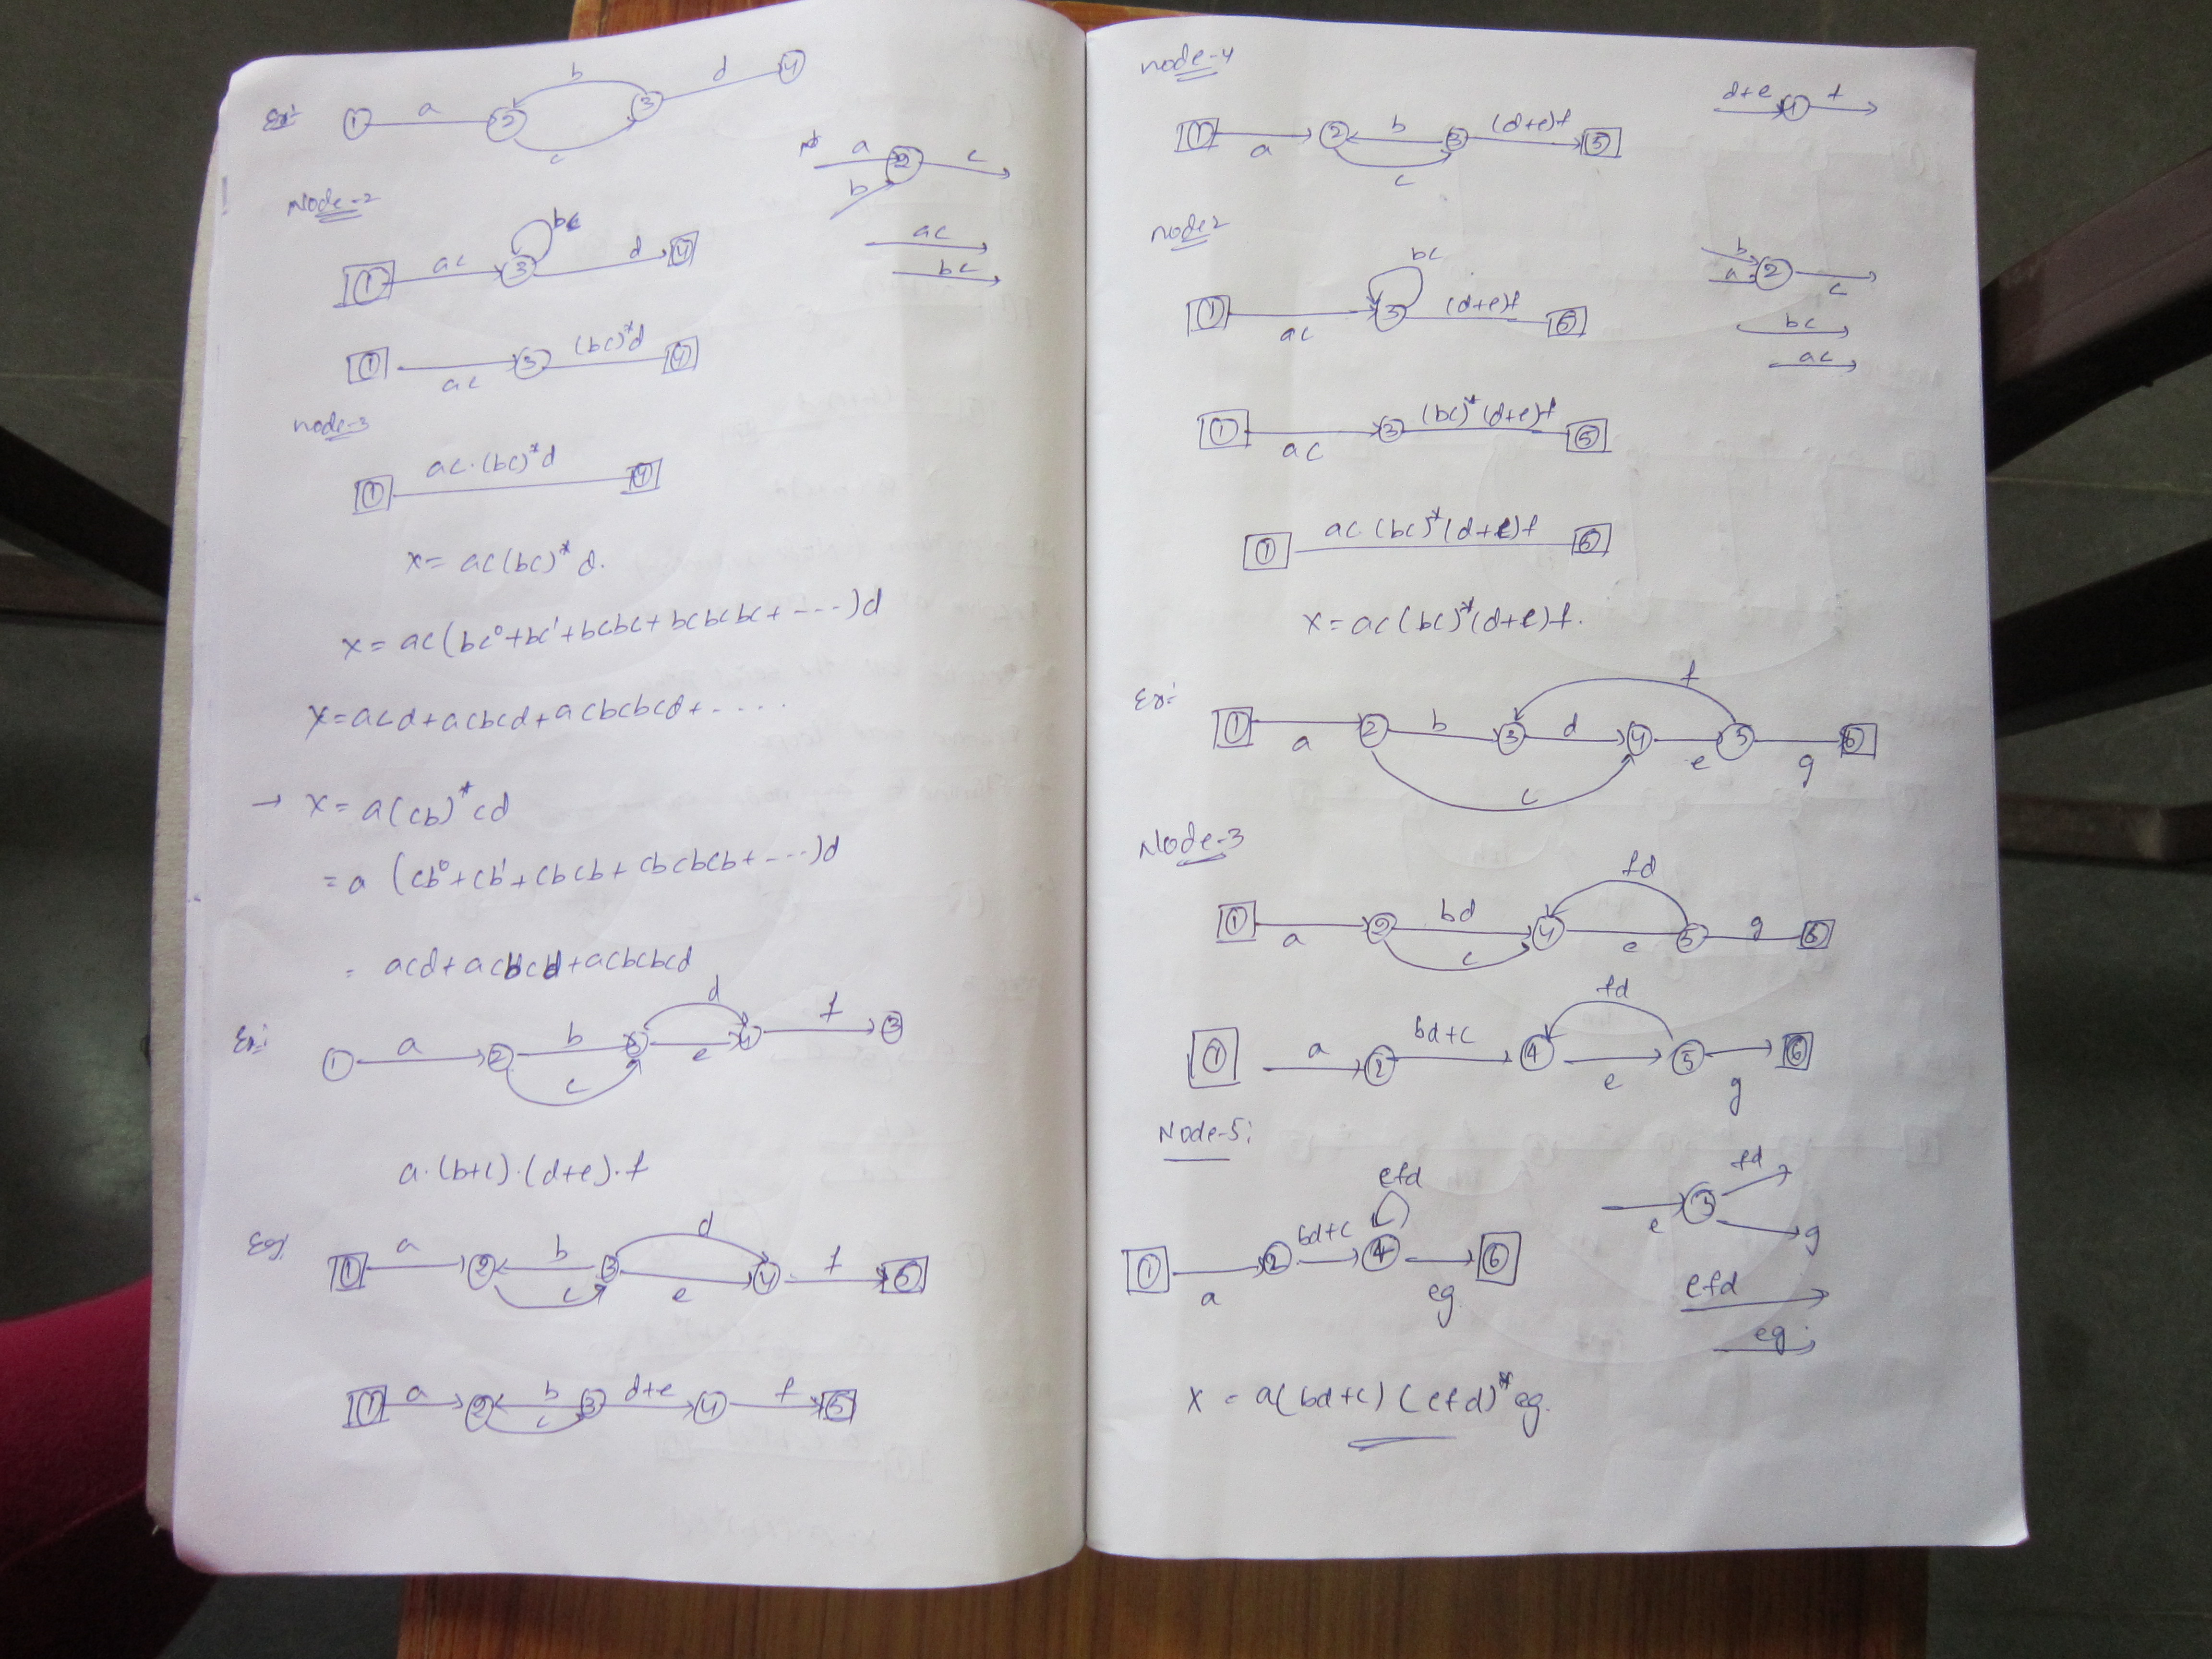 Ex:- 1 a 2 b c 3 d 4
a 2 c
b
Node-2
ac
bc
1 ac 3 bc d 4
1 ac 3 (bc)*d 4
node-3
1 ac.(bc)*d 4
x = ac(bc)*d.
x = ac(bc⁰+bc¹+bcbc+bcbcbc+---)d
x = acd+acbcd+acbcbcd+----.
→ x = a(cb)*cd
= a (cb⁰+cb¹+cbcb+cbcbcb+---)d
= acd+acbcd+acbcbcd
Ex:- 1 a 2 b c 3 d e 4 f
a.(b+c).(d+e).f
Eg/ 1 a 2 b c 3 d e 4 f 5
1 a 2 b c 3 d+e 4 f 5
node-4
1 a 2 b c 3 (d+e)f 5
d+e 4 f
node-2
1 ac 3 bc (d+e)f 5
b a 2 c
bc
ac
1 ac 3 (bc)*(d+e)f 5
1 ac (bc)*(d+e)f 5
x = ac(bc)*(d+e)f.
Ex:- 1 a 2 b c 3 d 4 e f 5 g 6
Node-3
1 a 2 bd c 4 e fd 5 g 6
1 a 2 bd+c 4 e fd 5 g 6
Node-5:
1 a 2 bd+c 4 efd eg 6
e 5 fd
g
efd
eg
x = a(bd+c)(efd)*eg.